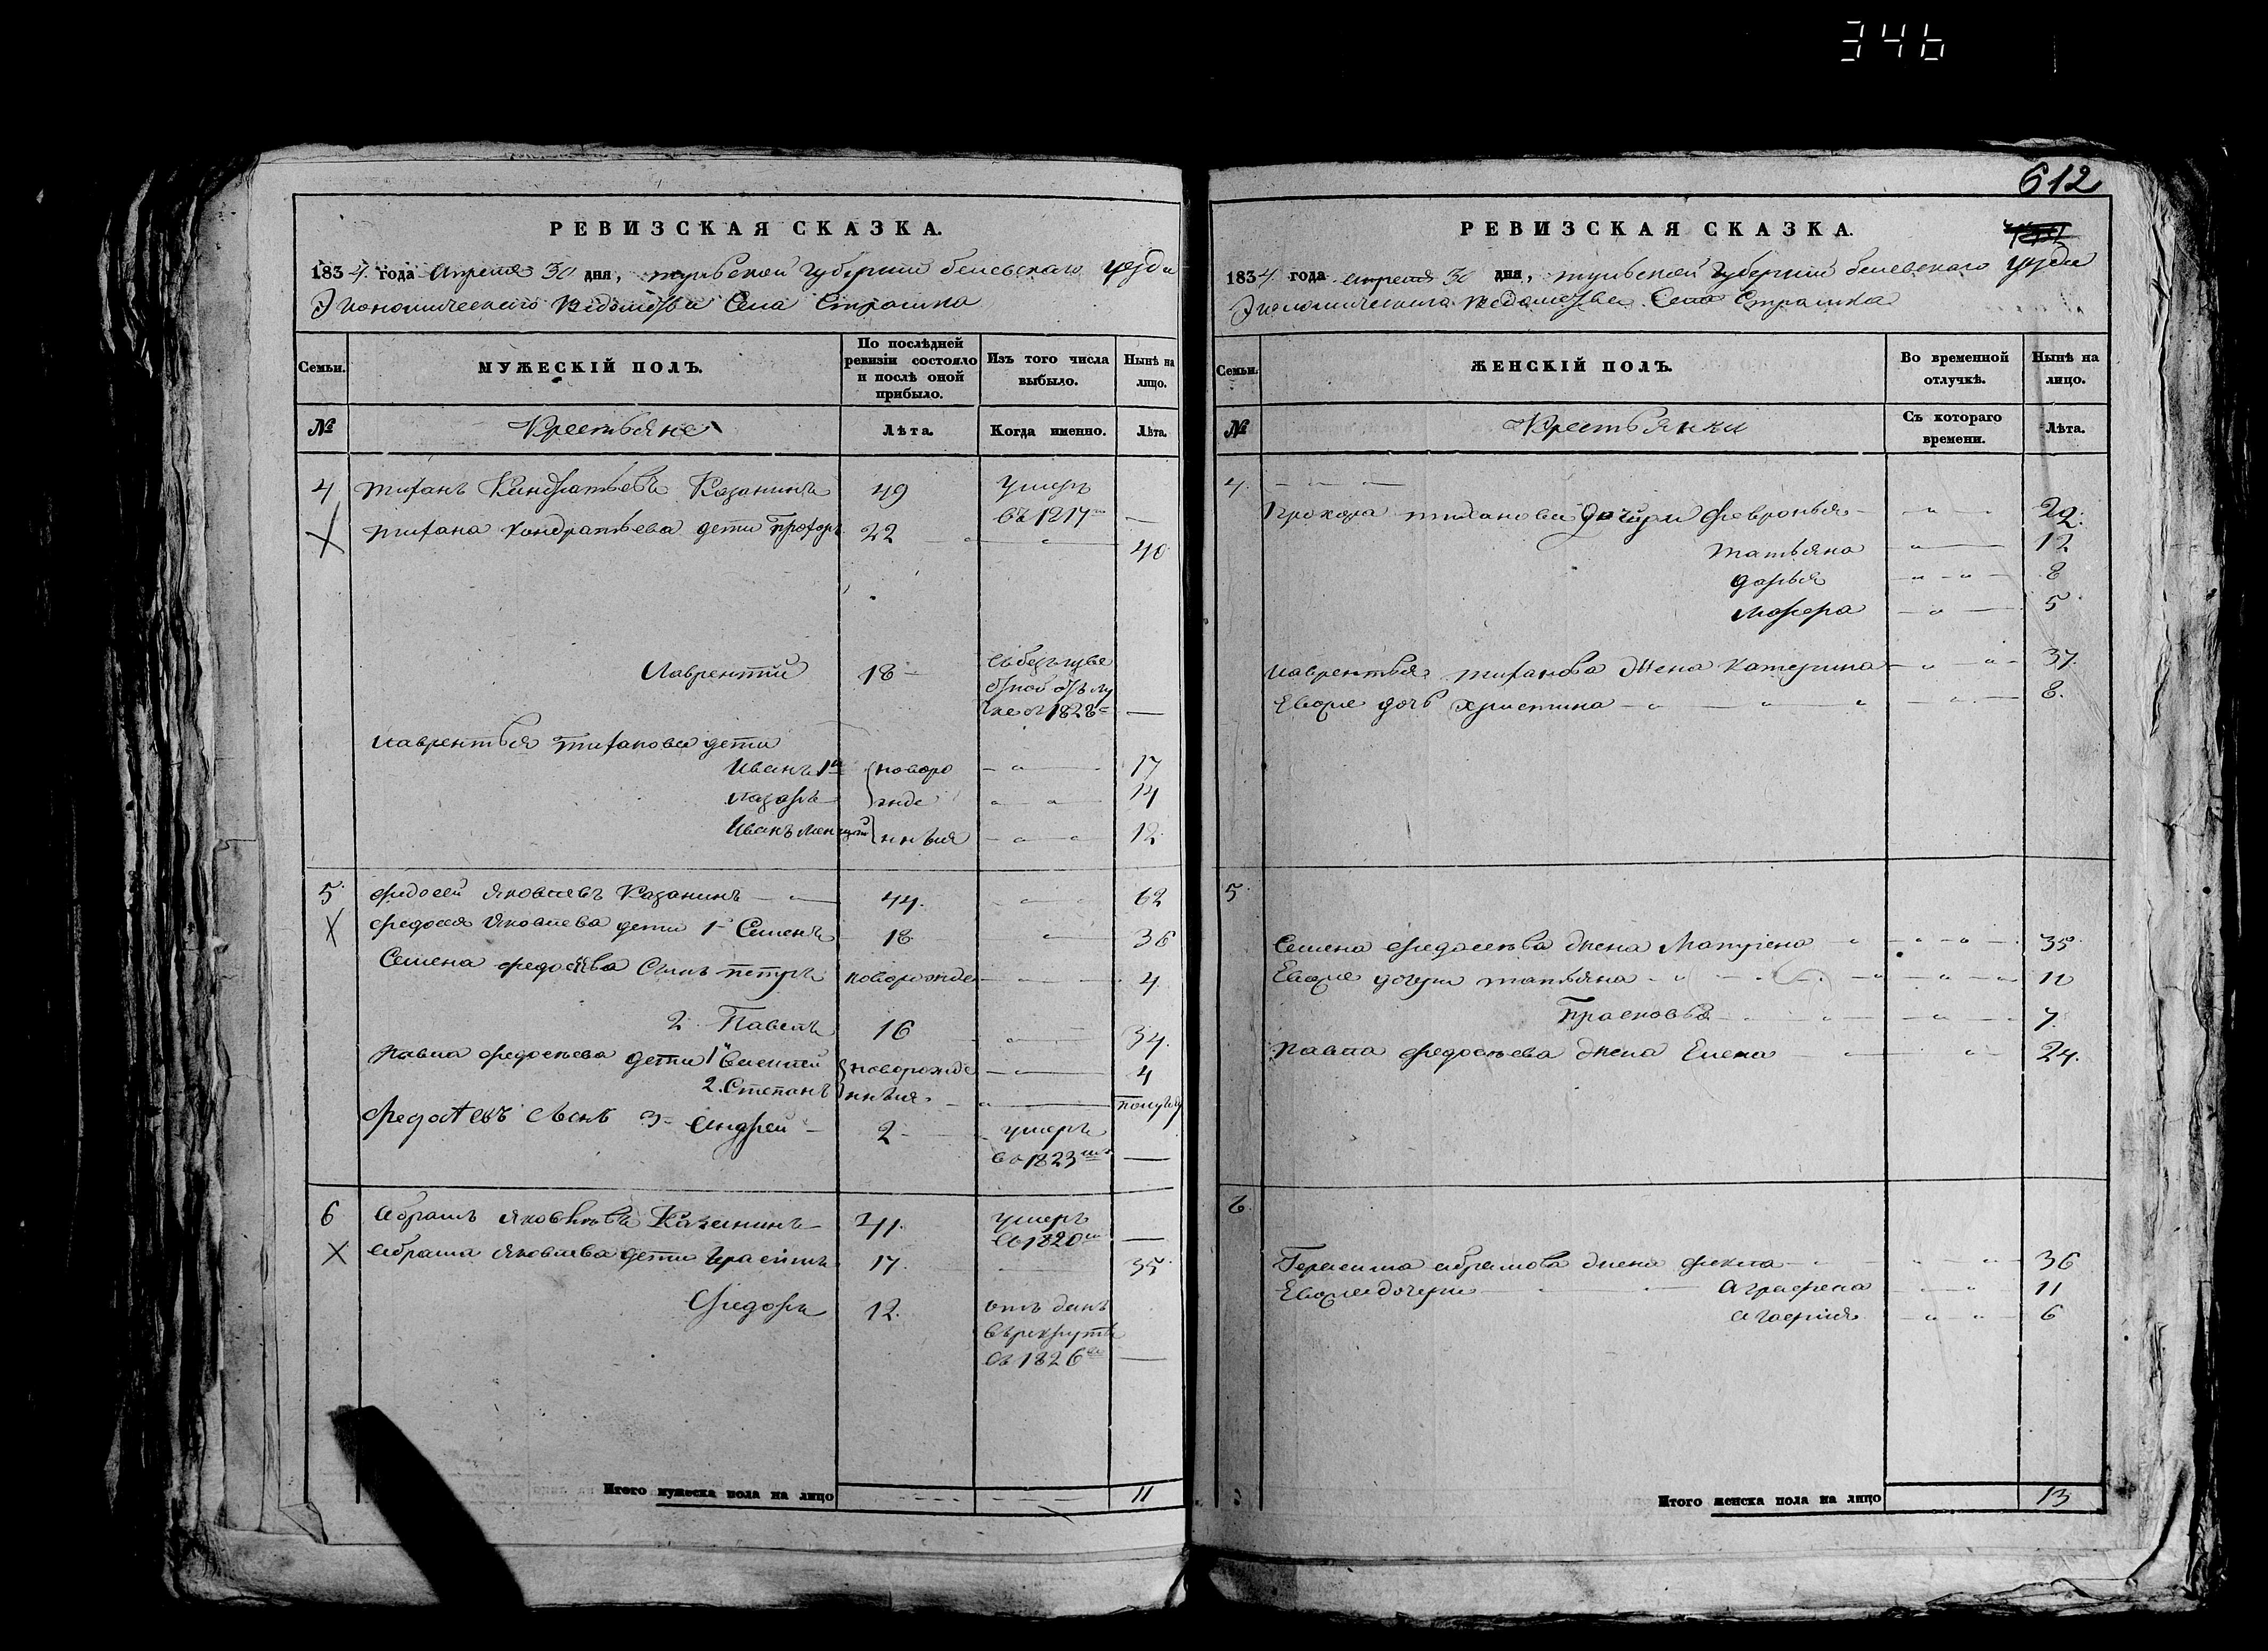 346
РЕВИЗСКАЯ СКАЗКА.
1834 года апреля 30 дня, тульской губернии белевского уезда
Экономического ведомства Села Страшка
Семьи.
МУЖЕСКІЙ ПОЛЪ.
По послѣдней ревизіи состояло и послѣ оной прибыло.
Изъ того числа выбыло.
Нынѣ на лицо.
№
Крестьяне
Лѣта.
Когда именно.
Лѣта.
4 Тиханъ Кандратьевъ Казанинъ 49 умеръ
въ 1817 —
Тихана Кондратьева дети Прохоръ 22 40
Лаврентий 18
съ 1828 —
Лаврентья Тиханова дети
Иванъ 1й новоро 17
Лазарь жде 14
Иванъ меншой нныя 12
5 Федосей Яковлевъ Казанинъ 44. 62
Федосея Яковлева дети 1 Семенъ 18 36
Семена Федосѣева Сынъ Петръ новорожде 4
2 Павелъ 16 34.
Павла Федосеева дети 1 новорожде 4
2. Степанъ нныя
Федосѣевъ Сынъ 3 Андрей 2 умеръ
въ 1823 —
6 Абрамъ Яковлевъ Казанинъ 41. умеръ
въ 1820 —
Абрама Яковлева дети Герасимъ 17. 35
Федоръ 12. отъ данъ
въ рекруты
въ 1826 —
Итого мужеска пола на лицо 11
612
РЕВИЗСКАЯ СКАЗКА.
1834 года апреля 30 дня, тульской губернии белевского уезда
Экономического ведомства Села Страшка
Семьи.
ЖЕНСКІЙ ПОЛЪ.
Во временной отлучкѣ.
Нынѣ на лицо.
№
Крестьянки
Съ котораго времени.
Лѣта.
4.
Прохора Тиханова дочери Февронья
Татьяна 12
Дарья 8
5
Лаврентья Тиханова жена Катерина 37.
Евоже дочь Христина 8.
5
Семена Федосеева жена Матрена 35
Евоже дочери Татьяна
Прасковья 7.
Павла Федосеева жена Елена 24.
6
Герасима Абрамова жена Фекла 36
Евоже дочери Аграфена 11
Агафия 6
Итого женска пола на лицо 13